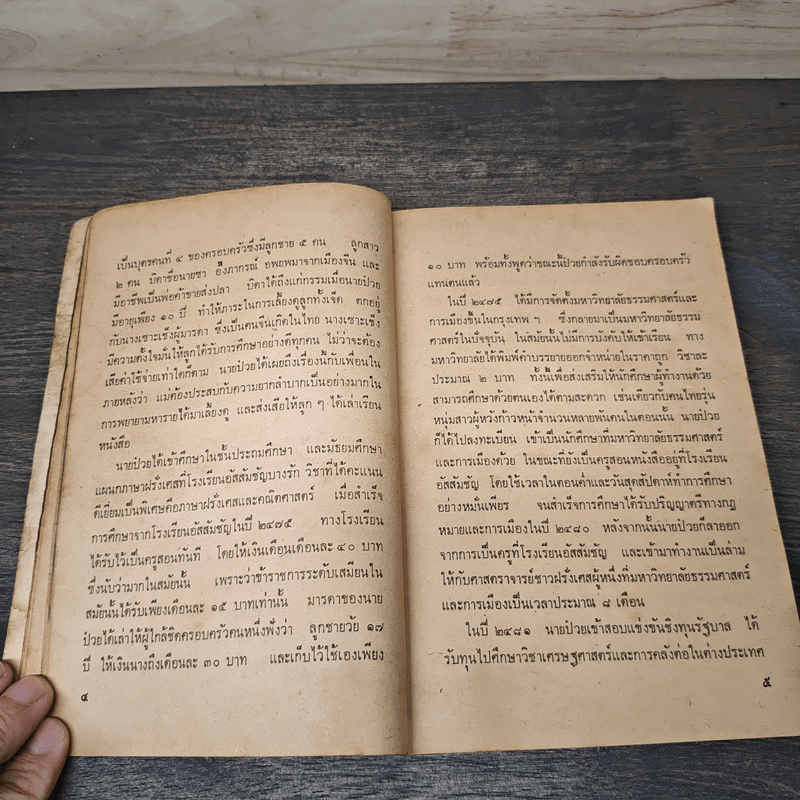 เป็นบุตรคนที่ ๔ ของครอบครัวซึ่งมีลูกชาย ๕ คน ลูกสาว
๒ คน บิดาชื่อนายซา อึ๊งภากรณ์ อพยพมาจากเมืองจีน และ
มีอาชีพเป็นพ่อค้าขายส่งปลา บิดาได้ถึงแก่กรรมเมื่อนายป๋วย
มีอายุเพียง ๑๐ ปี ทำให้ภาระในการเลี้ยงดูลูกทั้งเจ็ด ตกอยู่
กับนางเซาะเซ็งผู้มารดา ซึ่งเป็นคนจีนเกิดในไทย นางเซาะเซ็ง
มีความตั้งใจมั่นให้ลูกได้รับการศึกษาอย่างดีทุกคน ไม่ว่าจะต้อง
เสียค่าใช้จ่ายเท่าใดก็ตาม นายป๋วยได้เผยถึงเรื่องนี้กับเพื่อนใน
ภายหลังว่า แม่ต้องประสบกับความยากลำบากเป็นอย่างมากใน
การพยายามหารายได้มาเลี้ยงดู และส่งเสียให้ลูก ๆ ได้เล่าเรียน
หนังสือ
นายป๋วยได้เข้าศึกษาในชั้นประถมศึกษา และมัธยมศึกษา
แผนกภาษาฝรั่งเศสที่โรงเรียนอัสสัมชัญบางรัก วิชาที่ได้คะแนน
ดีเยี่ยมเป็นพิเศษคือภาษาฝรั่งเศสและคณิตศาสตร์ เมื่อสำเร็จ
การศึกษาจากโรงเรียนอัสสัมชัญในปี ๒๔๗๕ ทางโรงเรียน
ได้รับไว้เป็นครูสอนทันที โดยให้เงินเดือนเดือนละ ๔๐ บาท
ซึ่งนับว่ามากในสมัยนั้น เพราะว่าข้าราชการระดับเสมียนใน
สมัยนั้นได้รับเพียงเดือนละ ๑๕ บาทเท่านั้น มารดาของนาย
ป๋วยได้เล่าให้ผู้ใกล้ชิดครอบครัวคนหนึ่งฟังว่า ลูกชายวัย ๑๗
ปี ให้เงินนางถึงเดือนละ ๓๐ บาท และเก็บไว้ใช้เองเพียง
๔
๑๐ บาท พร้อมทั้งพูดว่าขณะนี้ป๋วยกำลังรับผิดชอบครอบครัว
แทนตนแล้ว
ในปี ๒๔๗๕ ได้มีการจัดตั้งมหาวิทยาลัยธรรมศาสตร์และ
การเมืองขึ้นในกรุงเทพ ฯ ซึ่งกลายมาเป็นมหาวิทยาลัยธรรม
ศาสตร์ในปัจจุบัน ในสมัยนั้นไม่มีการบังคับให้เข้าเรียน ทาง
มหาวิทยาลัยได้พิมพ์คำบรรยายออกจำหน่ายในราคาถูก วิชาละ
ประมาณ ๒ บาท ทั้งนี้เพื่อส่งเสริมให้นักศึกษาผู้ทำงานด้วย
สามารถศึกษาด้วยตนเองได้ตามสะดวก เช่นเดียวกับคนไทยรุ่น
หนุ่มสาวผู้หวังก้าวหน้าจำนวนหลายพันคนในตอนนั้น นายป๋วย
ก็ได้ไปลงทะเบียน เข้าเป็นนักศึกษาที่มหาวิทยาลัยธรรมศาสตร์
และการเมืองด้วย ในขณะที่ยังเป็นครูสอนหนังสืออยู่ที่โรงเรียน
อัสสัมชัญ โดยใช้เวลาในตอนค่ำและวันสุดสัปดาห์ทำการศึกษา
อย่างหมั่นเพียร จนสำเร็จการศึกษาได้รับปริญญาตรีทางกฎ
หมายและการเมืองในปี ๒๔๘๐ หลังจากนั้นนายป๋วยก็ลาออก
จากการเป็นครูที่โรงเรียนอัสสัมชัญ และเข้ามาทำงานเป็นล่าม
ให้กับศาสตราจารย์ชาวฝรั่งเศสผู้หนึ่งที่มหาวิทยาลัยธรรมศาสตร์
และการเมืองเป็นเวลาประมาณ ๘ เดือน
ในปี ๒๔๘๑ นายป๋วยเข้าสอบแข่งขันชิงทุนรัฐบาล ได้
รับทุนไปศึกษาวิชาเศรษฐศาสตร์และการคลังต่อในต่างประเทศ
๕